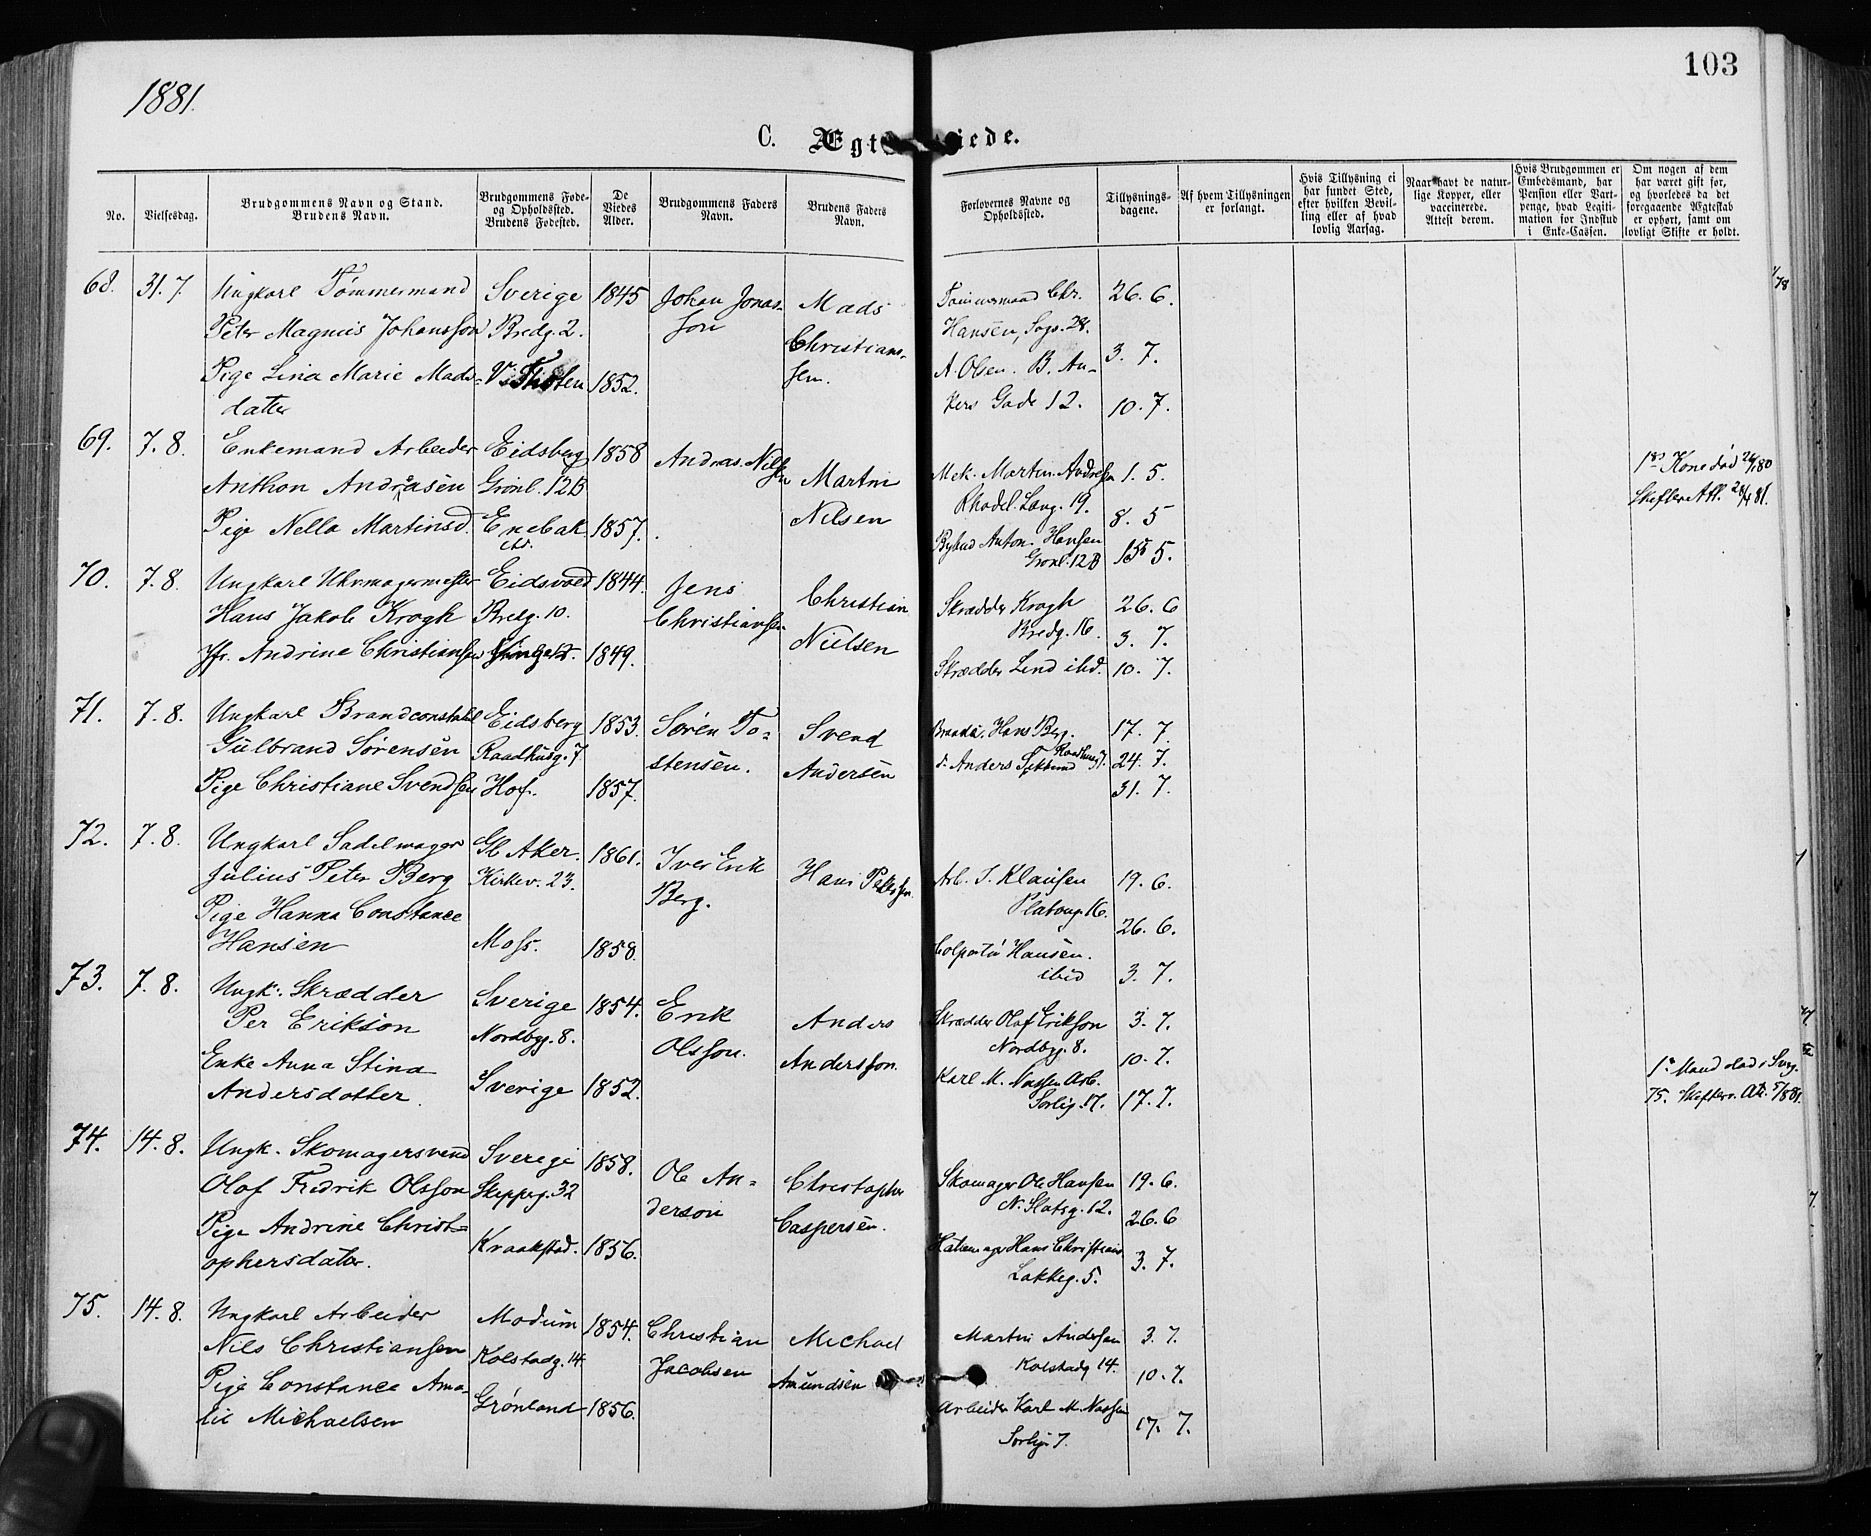 1881.
103
C. Ægteviede.
No.
Vielsesdag.
Brudgommens Navn og Stand.
Brudens Navn.
Brudgommens Føde-
og Opholdssted.
Brudens Fødested.
De
Viedes
Alder.
Brudgommens Faders
Navn.
Brudens Faders
Navn.
Forlovernes Navne og
Opholdssted.
Tillysnings-
dagene.
Af hvem Tillysningen
er forlangt.
Hvis Tillysning ei
har fundet Sted,
efter hvilken Bevil-
ling eller af hvad
lovlig Aarsag.
Naar havt de natur-
lige Kopper, eller
vaccinerede.
Attest derom.
Hvis Brudgommen er
Embedsmand, har
Pension eller Vart-
penge, hvad Legiti-
mation for Indskud
i Enke-Cassen.
Om nogen af dem
har været gift før,
og hvorledes da det
foregaaende Ægteskab
er ophørt, samt om
lovligt Skifte er holdt.
68. 31. 7. Ungkarl Tømmermand Sverige 1845 Johan Jonas- Mads Tømmermand Chr. 26. 6.
Peter Magnus Johansson Bredg. 2. son Christian- Hansen, Sogs. 28.
Pige Lina Marie Mads- V. 1852. sen. A. Olsen. B. An- 3. 7.
datter kers Gade 12. 10. 7.
69. 7. 8. Enkemand Arbeider Eidsberg 1858 Andreas Nilsen Martin Mek. Martin Andresen 1. 5. 1ste Kone død 80
Anthon Andrasen Grønl. 12B Nilsen Lang. 19. 8. 5 Skifter. Att. 81.
Pige Nella Martinsd. Enebak 1857. Anton Hansen
Grønl. 12B 15. 5.
70. 7. 8. Ungkarl Uhrmagermester Eidsvold 1844. Jens Christian Skrædder Krogh 26. 6
Hans Jakob Krogh Bredg. 10. Christiansen Nielsen Bredg. 16. 3. 7.
Jfr. Andrine Christiansen 1849. Skrædder Lind ibd. 10. 7.
71. 7. 8. Ungkarl Brandconstabel Eidsberg 1853. Søren To- Svend Hans Berg. 17. 7.
Gulbrand Sørensen Raadhusg. 7 stensen. Andersen d. Anders 24. 7.
Pige Christiane Svendsen Hof. 1857. 31. 7.
72. 7. 8. Ungkarl Sadelmager Gl Aker. 1861. Iver Erik Hans Pedersen Arb. J. Klausen 19. 6.
Julius Peter Berg Kirkev. 23. Berg. Platoug. 16.
Pige Hanna Constance 26. 6.
Hansen Moss. 1858. Colportør Hansen.
ibid 3. 7.
73. 7. 8. Ungk. Skrædder Sverige 1854. Erik Anders Skrædder Olaf Erikson 3. 7.
Per Erikson Nordbyg. 8. Olsson. Andersson. Nordbyg. 8. 10. 7.
Enke Anna Stina Karl M. Nassen Arb. 1ste Mand død i Sverg.
Andersdotter. Sverige 1852. Sorlig. 17. 17. 7. 75. Skifter. Att. 5/8 81.
74. 14. 8. Ungk. Skomagersvend Sverige 1858. Ole An- Christopher Skomager Ole Hansen 19. 6.
Olof Fredrik Olsson Skipperg. 32 derson Caspersen. N. Slotsg. 12. 26. 6
Pige Andrine Christ- Hans Christians
ophersdatter. Kraakstad. 1856. Lakkeg. 5. 3. 7.
75. 14. 8. Ungkarl Arbeider Modum 1854. Christian Michael Martin Andersen 3. 7.
Nils Christiansen Kolstadg. 14 Jacobsen Amundsen Kolstadg 14. 10. 7.
Pige Constance Ama- Grønland 1856. Arbeider Karl M. Nassen
lie Michaelsen Sorlig. 7. 17. 7.